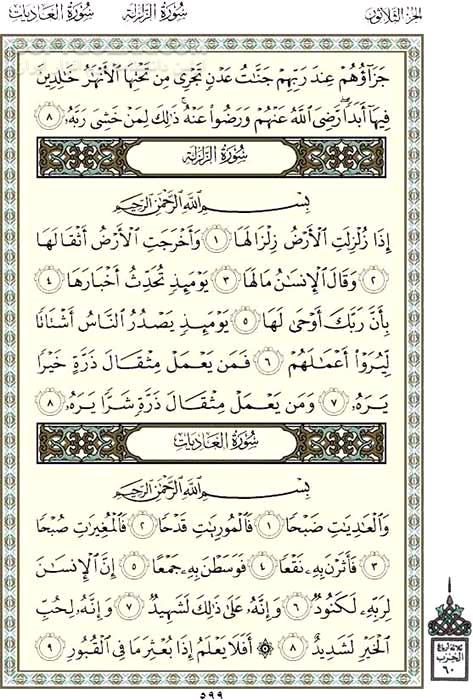 سُورَةُ العَادِيَاتِ سُورَةُ الزَّلْزَلَةِ الجُزْءُ الثَّلَاثُونَ
جَزَآؤُهُمْ عِندَ رَبِّهِمْ جَنَّٰتُ عَدْنٍ تَجْرِى مِن تَحْتِهَا ٱلْأَنْهَٰرُ خَٰلِدِينَ
فِيهَآ أَبَدًا ۖ رَّضِىَ ٱللَّهُ عَنْهُمْ وَرَضُوا۟ عَنْهُ ۚ ذَٰلِكَ لِمَنْ خَشِىَ رَبَّهُۥ ٨
سُورَةُ الزَّلْزَلَةِ
بِسْمِ ٱللَّهِ ٱلرَّحْمَٰنِ ٱلرَّحِيمِ
إِذَا زُلْزِلَتِ ٱلْأَرْضُ زِلْزَالَهَا ١ وَأَخْرَجَتِ ٱلْأَرْضُ أَثْقَالَهَا
٢ وَقَالَ ٱلْإِنسَٰنُ مَا لَهَا ٣ يَوْمَئِذٍ تُحَدِّثُ أَخْبَارَهَا ٤
بِأَنَّ رَبَّكَ أَوْحَىٰ لَهَا ٥ يَوْمَئِذٍ يَصْدُرُ ٱلنَّاسُ أَشْتَاتًا
لِّيُرَوْا۟ أَعْمَٰلَهُمْ ٦ فَمَن يَعْمَلْ مِثْقَالَ ذَرَّةٍ خَيْرًا
يَرَهُۥ ٧ وَمَن يَعْمَلْ مِثْقَالَ ذَرَّةٍ شَرًّا يَرَهُۥ ٨
سُورَةُ العَادِيَاتِ
بِسْمِ ٱللَّهِ ٱلرَّحْمَٰنِ ٱلرَّحِيمِ
وَٱلْعَٰدِيَٰتِ ضَبْحًا ١ فَٱلْمُورِيَٰتِ قَدْحًا ٢ فَٱلْمُغِيرَٰتِ صُبْحًا
٣ فَأَثَرْنَ بِهِۦ نَقْعًا ٤ فَوَسَطْنَ بِهِۦ جَمْعًا ٥ إِنَّ ٱلْإِنسَٰنَ
لِرَبِّهِۦ لَكَنُودٌ ٦ وَإِنَّهُۥ عَلَىٰ ذَٰلِكَ لَشَهِيدٌ ٧ وَإِنَّهُۥ لِحُبِّ
ٱلْخَيْرِ لَشَدِيدٌ ٨ ۞ أَفَلَا يَعْلَمُ إِذَا بُعْثِرَ مَا فِى ٱلْقُبُورِ ٩
ثلاثة أرباع
الحزب
٦٠
٥٩٩